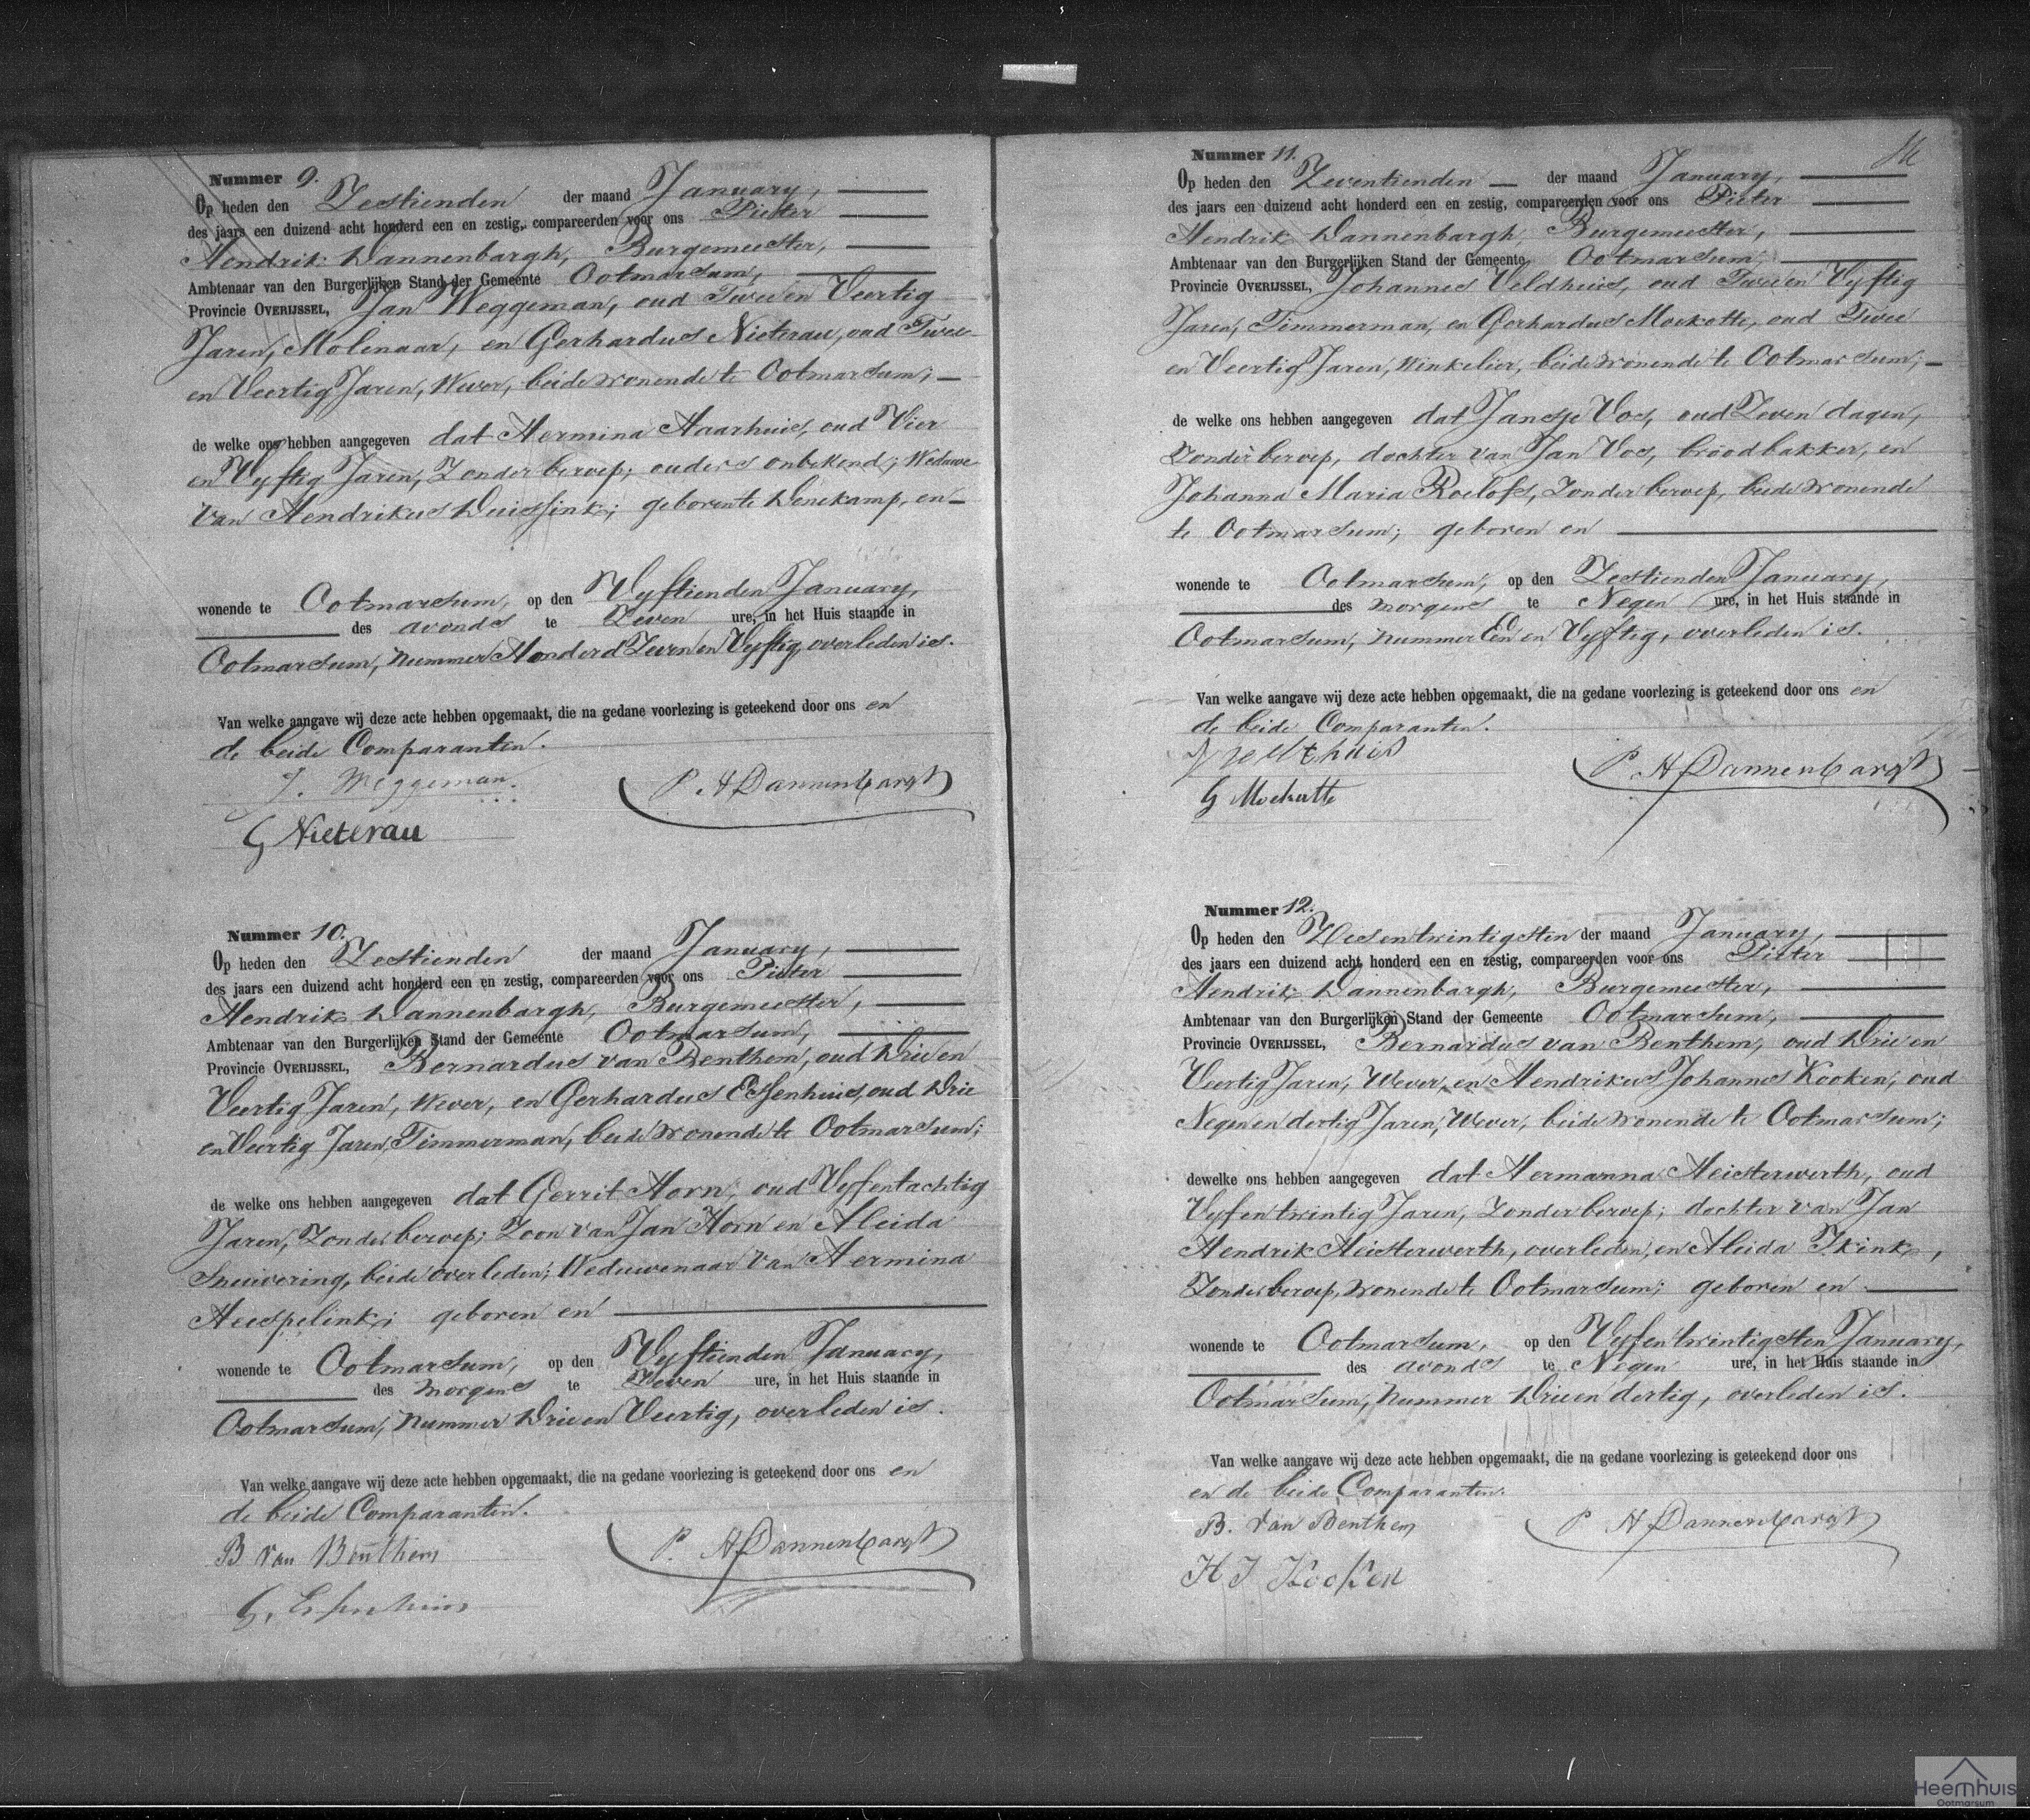 Nummer 9.
Op heden den Zestienden der maand January,
des jaars een duizend acht honderd een en zestig, compareerden voor ons Pieter
Hendrik Dannenbargh, Burgemeester,
Ambtenaar van den Burgerlijken Stand der Gemeente Ootmarsum,
Provincie OVERIJSSEL, Jan Weggeman, oud Twee en Veertig
Jaren, Molenaar, en Gerhardus Nieterau, oud Twee
en Veertig Jaren, Wever, beide wonende te Ootmarsum;
de welke ons hebben aangegeven dat Hermina Haarhuis, oud Vier
en Vyftig Jaren, Zonder beroep; ouders onbekend; Weduwe
van Hendrikus Duissink; geboren te Denekamp, en
wonende te Ootmarsum, op den Vyftienden January,
des avonds te Zeven ure, in het Huis staande in
Ootmarsum, nummer Honderd Zeven en Vyftig, overleden is.
Van welke aangave wij deze acte hebben opgemaakt, die na gedane voorlezing is geteekend door ons en
de beide Comparanten.
J. Weggeman.
P H Dannenbargh
G Nieterau
Nummer 10.
Op heden den Zestienden der maand January,
des jaars een duizend acht honderd een en zestig, compareerden voor ons Pieter
Hendrik Dannenbargh, Burgemeester,
Ambtenaar van den Burgerlijken Stand der Gemeente Ootmarsum,
Provincie OVERIJSSEL, Bernardus van Benthem, oud Drie en
Veertig Jaren, Wever, en Gerhardus Essenhuis, oud Drie
en Veertig Jaren, Timmerman, beide wonende te Ootmarsum;
de welke ons hebben aangegeven dat Gerrit Horn, oud Vyf en tachtig
Jaren, Zonder beroep; Zoon van Jan Horn en Aleida
Sneivering, beide overleden; Weduwenaar van Hermina
Heespelink; geboren en
wonende te Ootmarsum, op den Vyftienden January,
des morgens te Zeven ure, in het Huis staande in
Ootmarsum, nummer Drie en Veertig, overleden is.
Van welke aangave wij deze acte hebben opgemaakt, die na gedane voorlezing is geteekend door ons en
de beide Comparanten.
B van Benthem
P. H Dannenbargh
G. Essenhuis
Nummer 11.
Op heden den Zeventienden der maand January,
des jaars een duizend acht honderd een en zestig, compareerden voor ons Pieter
Hendrik Dannenbargh, Burgemeester,
Ambtenaar van den Burgerlijken Stand der Gemeente Ootmarsum,
Provincie OVERIJSSEL, Johannes Veldhuis, oud Twee en Vyftig
Jaren, Timmerman, en Gerhardus Mockotte, oud Twee
en Veertig Jaren, Winkelier, beide wonende te Ootmarsum;
de welke ons hebben aangegeven dat Jansje Vos, oud Zeven dagen,
Zonder beroep, dochter van Jan Vos, broodbakker, en
Johanna Maria Roelofs, Zonder beroep, beide wonende
te Ootmarsum; geboren en
wonende te Ootmarsum, op den Zestienden January,
des morgens te Negen ure, in het Huis staande in
Ootmarsum, nummer Een en Vyftig, overleden is.
Van welke aangave wij deze acte hebben opgemaakt, die na gedane voorlezing is geteekend door ons en
de beide Comparanten.
J Velthuis
P H Dannenbargh
G Mockotte
Nummer 12.
Op heden den Zesentwintigsten der maand January,
des jaars een duizend acht honderd een en zestig, compareerden voor ons Pieter
Hendrik Dannenbargh, Burgemeester,
Ambtenaar van den Burgerlijken Stand der Gemeente Ootmarsum,
Provincie OVERIJSSEL, Bernardus van Benthem, oud Drie en
Veertig Jaren, Wever, en Hendrikus Johannes Kooken, oud
Negen en dertig Jaren, Wever, beide wonende te Ootmarsum;
dewelke ons hebben aangegeven dat Hermanna Meisterwerth, oud
Vyf en twintig Jaren, Zonder beroep; dochter van Jan
Hendrik Meisterwerth, overleden, en Aleida Ikink,
Zonder beroep, wonende te Ootmarsum; geboren en
wonende te Ootmarsum, op den Vyf en twintigsten January,
des avonds te Negen ure, in het Huis staande in
Ootmarsum, nummer Drie en dertig, overleden is.
Van welke aangave wij deze acte hebben opgemaakt, die na gedane voorlezing is geteekend door ons
en de beide Comparanten.
B. van Benthem
P H Dannenbargh
H J Kooken
Heemhuis
Ootmarsum